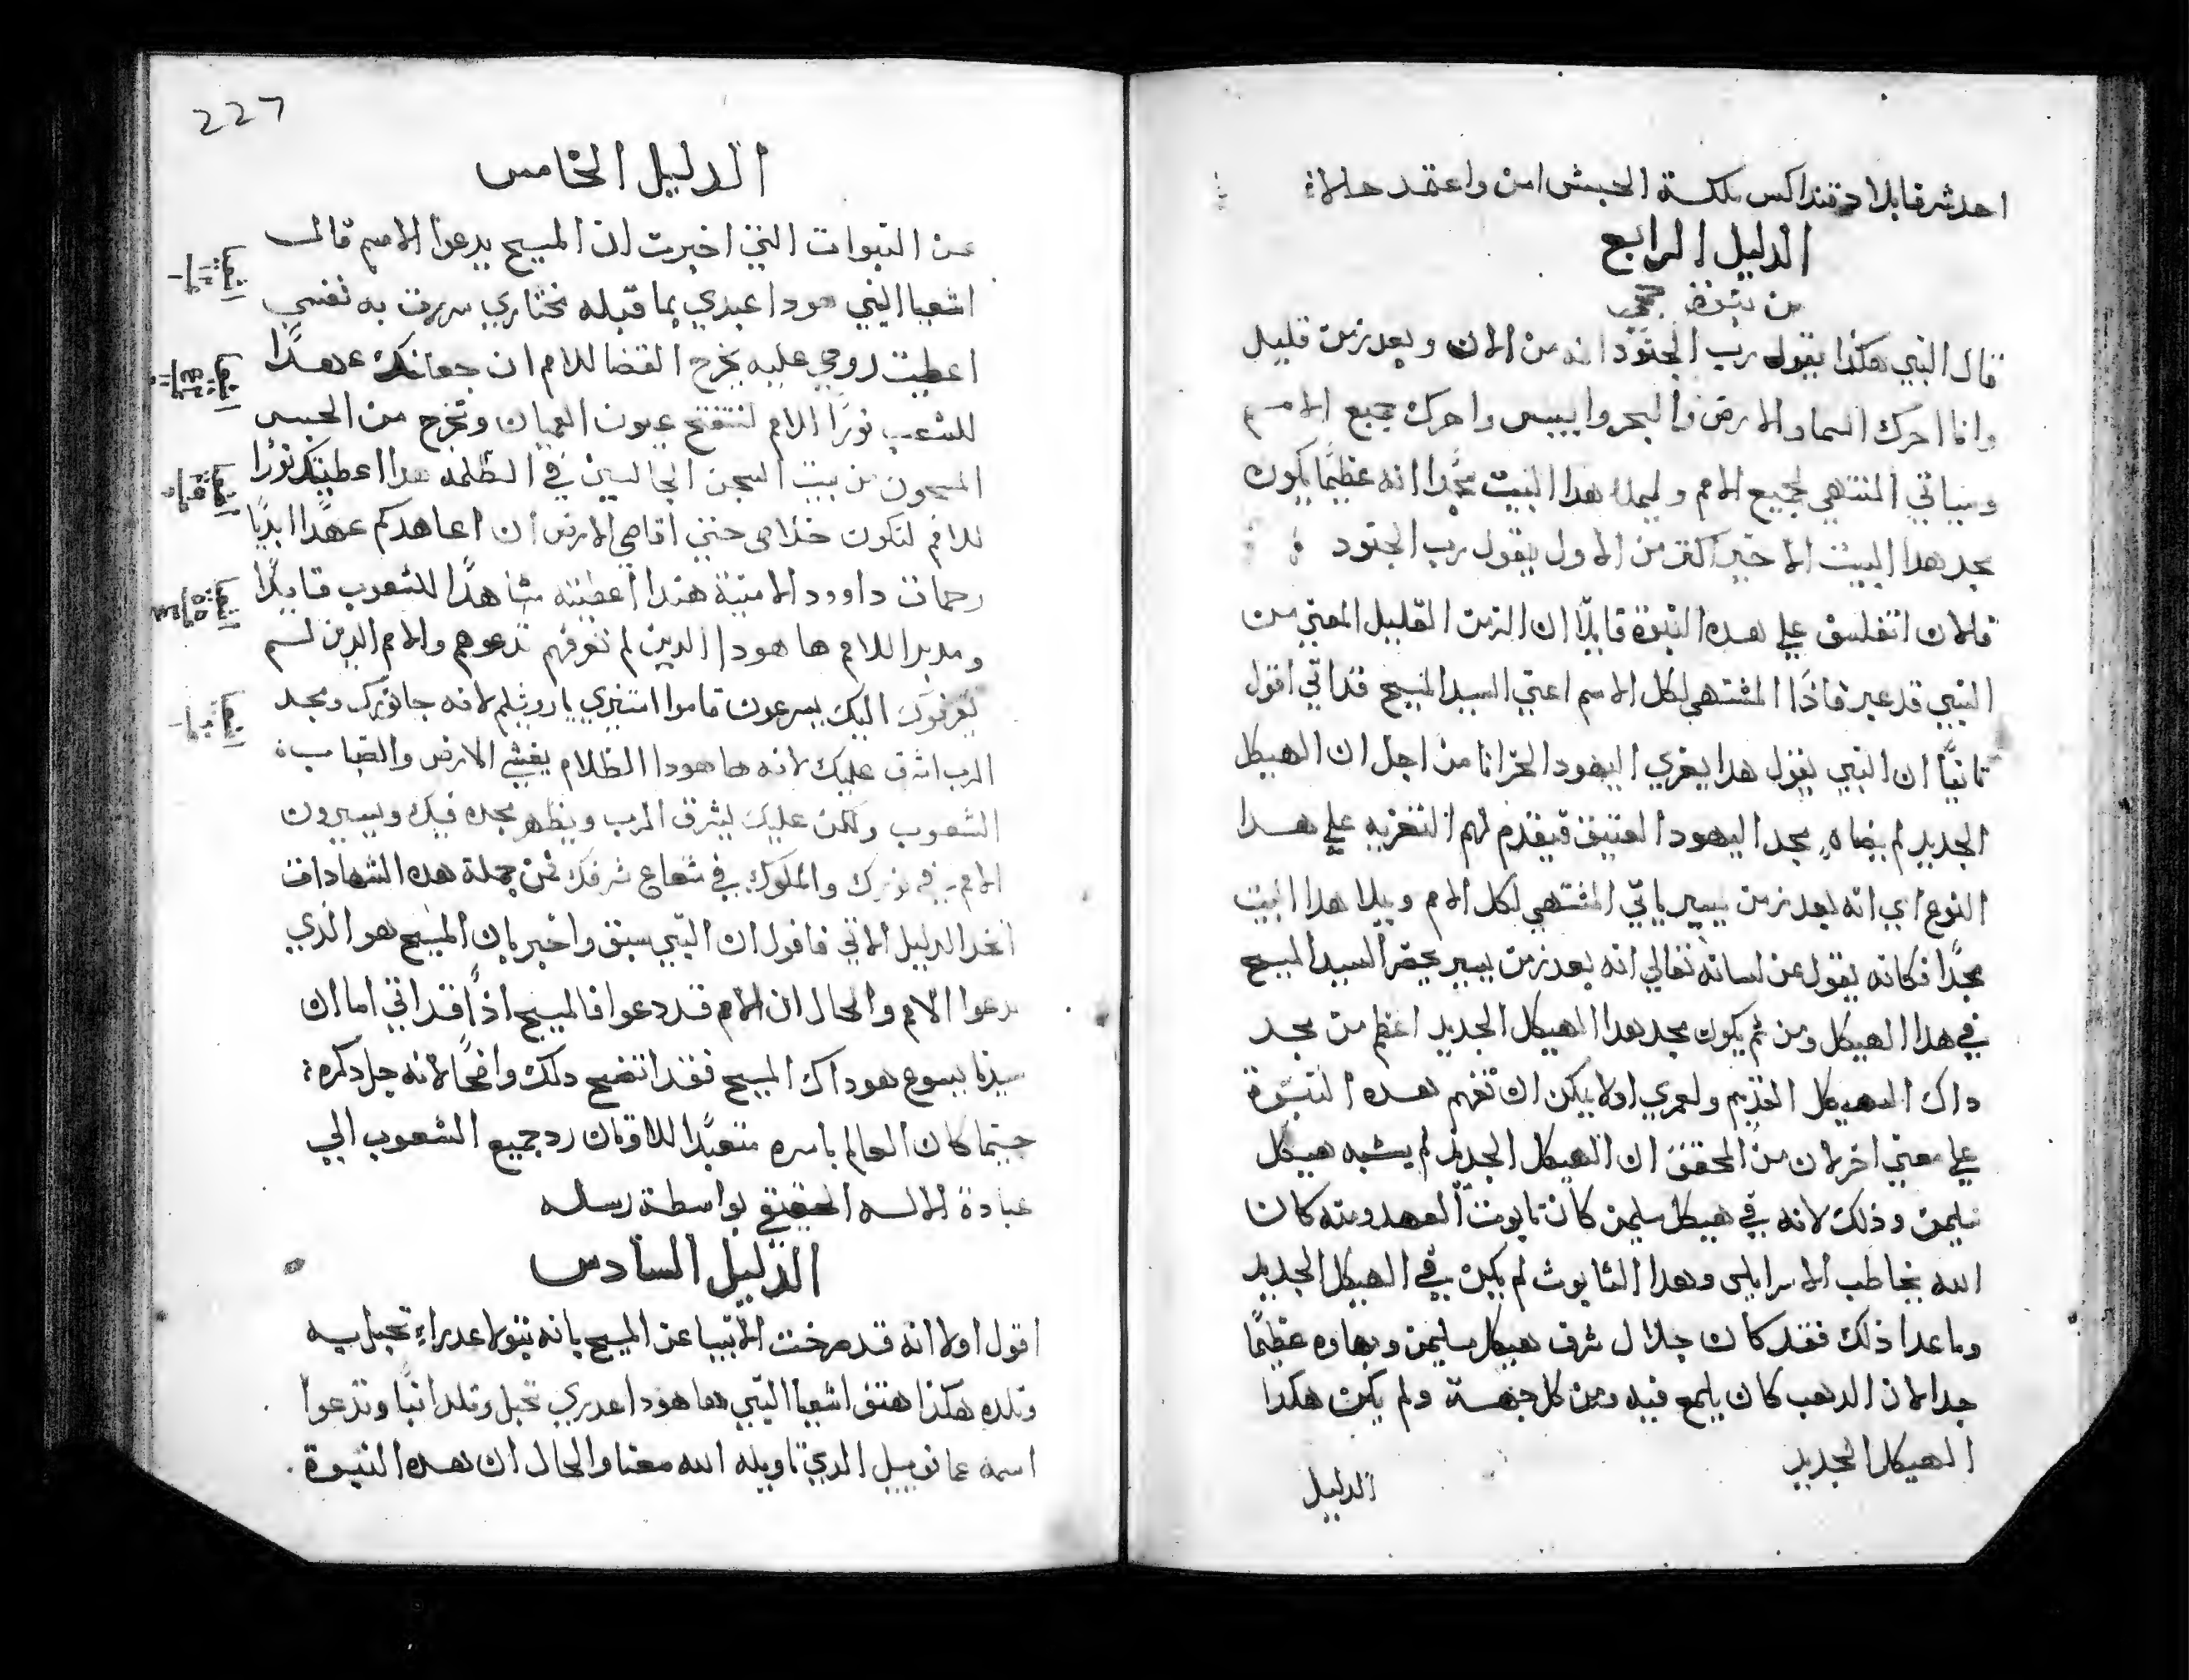 احد شرفا بلاد قنداكس ملكة الحبش امن واعتمد حالاً
الدليل الرابع
من نبوة حجي
قال النبي هكذا يقول رب الجنود انه من الان وبعد زمن قليل
وانا احرك السما والارض والبحر واليبس واحرك جميع الامم
وسياتي المنتهي لجميع الامم وليملا هدا البيت مجدا انه عظيمًا يكون
مجد هدا البيت الاخير اكتر من الاول يقول رب الجنود
فالان اتفلسف علي هده النبوة قايلًا ان الزمن القليل المعني من
النبي قد عبر فاذًا المشتهي لكل الامم اعني السيد المسيح قد اتي اقول
تانيًا ان النبي يقول هدا يعزي اليهود الحزانا من اجل ان الهيكل
الجديد لم يضاهي مجد اليهود العتيق فيقدم لهم التعزيه علي هدا
النوع اي انه بعد زمن يسير ياتي المشتهي لكل الامم ويملا هدا البيت
مجدًا فكانه يقول عن لسانه تعالي انه بعد زمن يسير يحضر السيد المسيح
في هدا الهيكل ومن ثم يكون مجد هدا الهيكل الجديد اعظم من مجد
داك الهيكل القديم ولعمري اولا يمكن ان تفهم هده النبوة
علي معني اخر لان من المحقق ان الهيكل الجديد لم يشبه هيكل
سليمن وذلك لانه في هيكل سليمن كان تابوت العهد ومنه كان
الله يخاطب الاسراييلي وهدا التابوت لم يكن في الهيكل الجديد
وما عدا ذلك فقد كان جلال شرف هيكل سليمن وبهاوه عظيمًا
جدا لان الدهب كان يلمع فيه ومن كل جهة ولم يكن هكدا
الهيكل الجديد
الدليل
227
الدليل الخامس
عن النبوات التي اخبرت ان المسيح يدعوا الامم قال
اشعيا النبي هودا عبدي بما قبله مختاري سررت به نفسي
اعطيت روحي عليه يخرج القضا للامم ان جعلتك عهدًا
للشعب نورًا للامم لتفتح عيون العميان وتخرج من الحبس
المسجون من بيت السجن الجالسين في الظلمه هدا اعطيتك نورًا
للامم لتكون خلاصي حتي اقاصي الارض ان اعاهدكم عهدًا ابديًا
رحمات داوود الامينة هندا اعطيته شاهدًا للشعوب قايدًا
ومدبرا للامم ها هودا الدين لم تعرفهم تدعوهم والامم الدين لم
يعرفوك اليك يسرعون قاموا استنيري يا اورشليم لانه جا نورك ومجد
الرب اشرق عليك لانه ها هودا الظلام يغشي الارض والضباب
الشعوب ولكن عليك يشرق الرب ويظهر مجده فيك ويسيرون
الامم في نورك والملوك في شعاع شرفك فمن جملة هده الشهادات
اتخد الدليل الاتي فاقول ان النبي سبق واخبر بان المسيح هو الذي
يدعوا الامم والحال ان الامم قد دعوا فالمسيح اذًا قد اتي اما ان
سيدنا يسوع هو داك المسيح فقد اتضح دلك واضحًا لانه جل دكره
حيتما كان العالم باسره متعبدًا للاوثان رد جميع الشعوب الي
عبادة الاله الحقيقي بواسطة رسله
الدليل السادس
اقول اولا انه قد صرخت الانبيا عن المسيح بانه يتولد عدراء تحبل به
وتلده هكذا هتف اشعيا النبي ها هودا عدري تحبل وتلد ابنًا وتدعوا
اسمه عمانوييل الدي تاويله الله معنا والحال ان هده النبوة